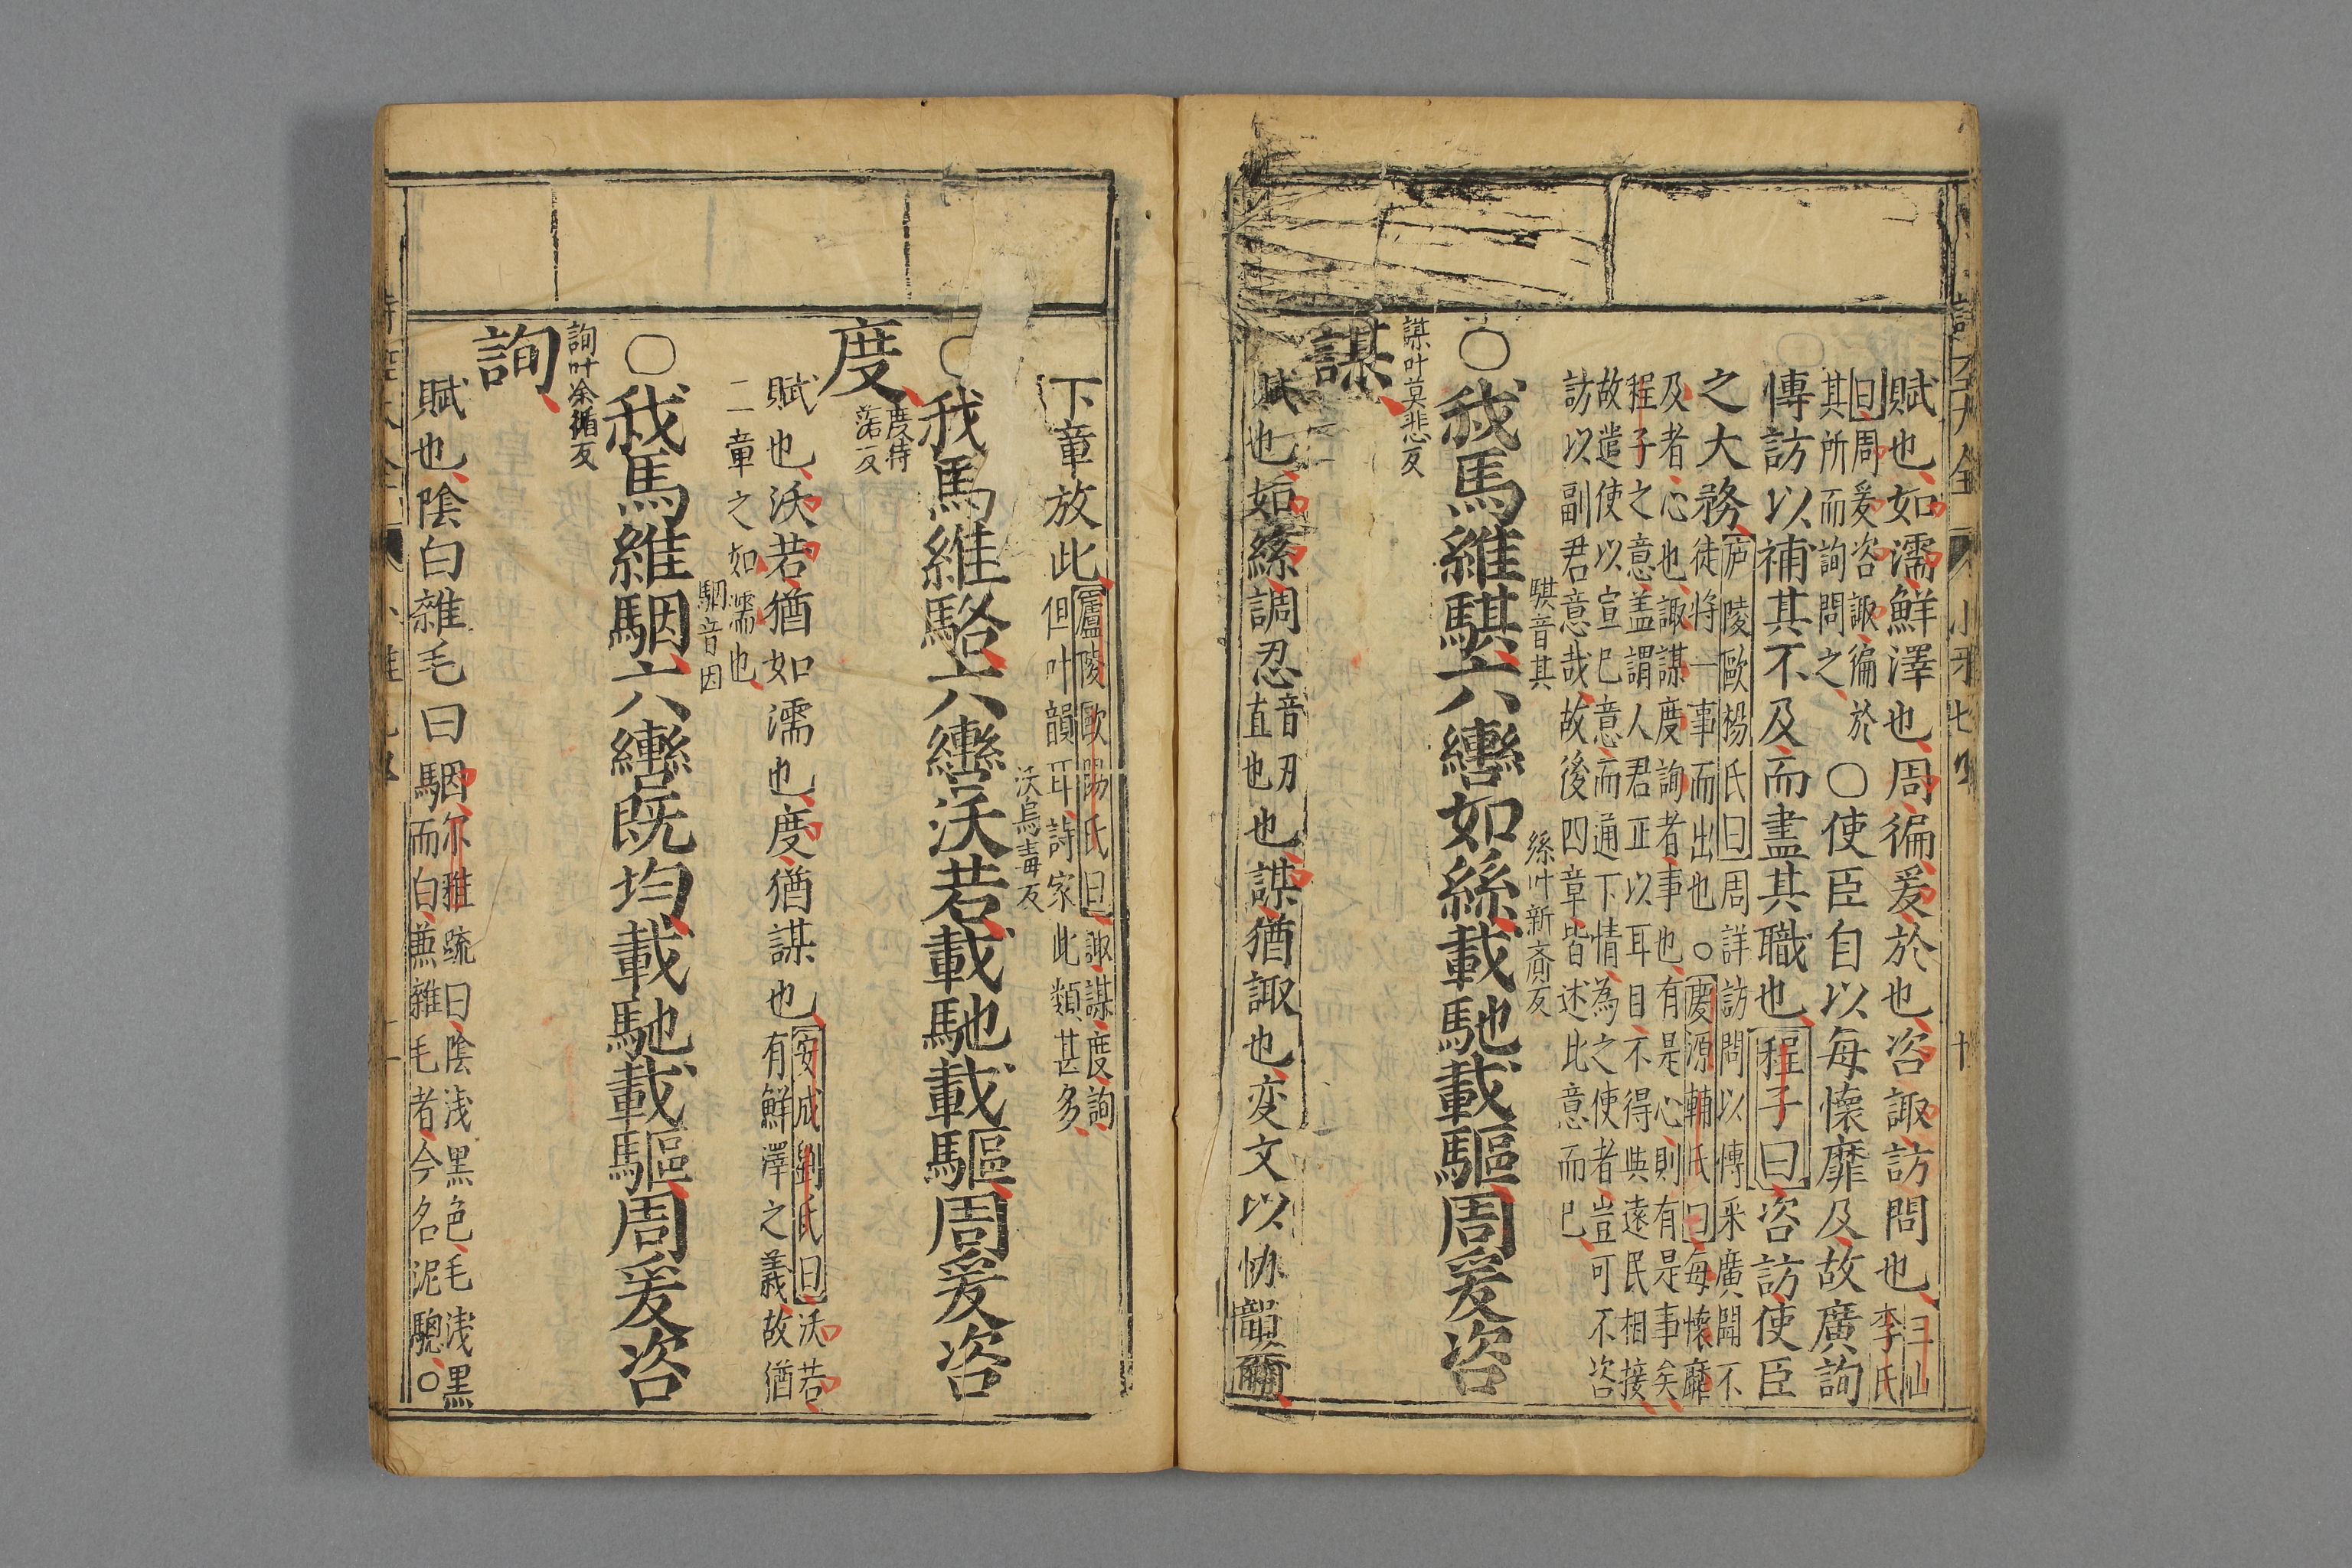 賦也如濡鮮澤也周徧爰於也咨諏訪問也三山李氏
曰周爰咨諏徧於其所而詢問之○使臣自以每懷靡及故廣詢
傳訪以補其不及而盡其職也程子曰咨訪使臣
之大務庐陵歐楊氏曰周詳訪問以傳采廣聞不
徒將一事而出也○慶源輔氏曰每懷靡
及者心也諏謀度詢者事也有是心則有是事矣
程子之意盖謂人君正以耳目不得與遠民相接
故遣使以宣已意而通下情為之使者豈可不咨
訪以副君意哉故後四章皆述此意而已
○我馬維騏六轡如絲載馳載驅周爰咨
騏音其
絲叶新齎反
謀
謀叶莫悲反
賦也如絲調忍音刃直也也謀猶諏也变文以协韻爾
下章放此廬陵歐陽氏曰諏謀度詢
但叶韻耳詩家此類甚多
○我馬維駱六轡沃若載馳載驅周爰咨
沃烏毒反
度
度待落反
賦也沃若猶如濡也度猶謀也安成劉氏曰沃若
有鮮澤之義故猶
二章之如濡也
○我馬維駰六轡既均載馳載驅周爰咨
駰音因
詢
詢叶余循反
賦也陰白雜毛曰駰尔雅疏曰陰浅黒色毛浅黒
而白兼雜毛者今名泥驄○